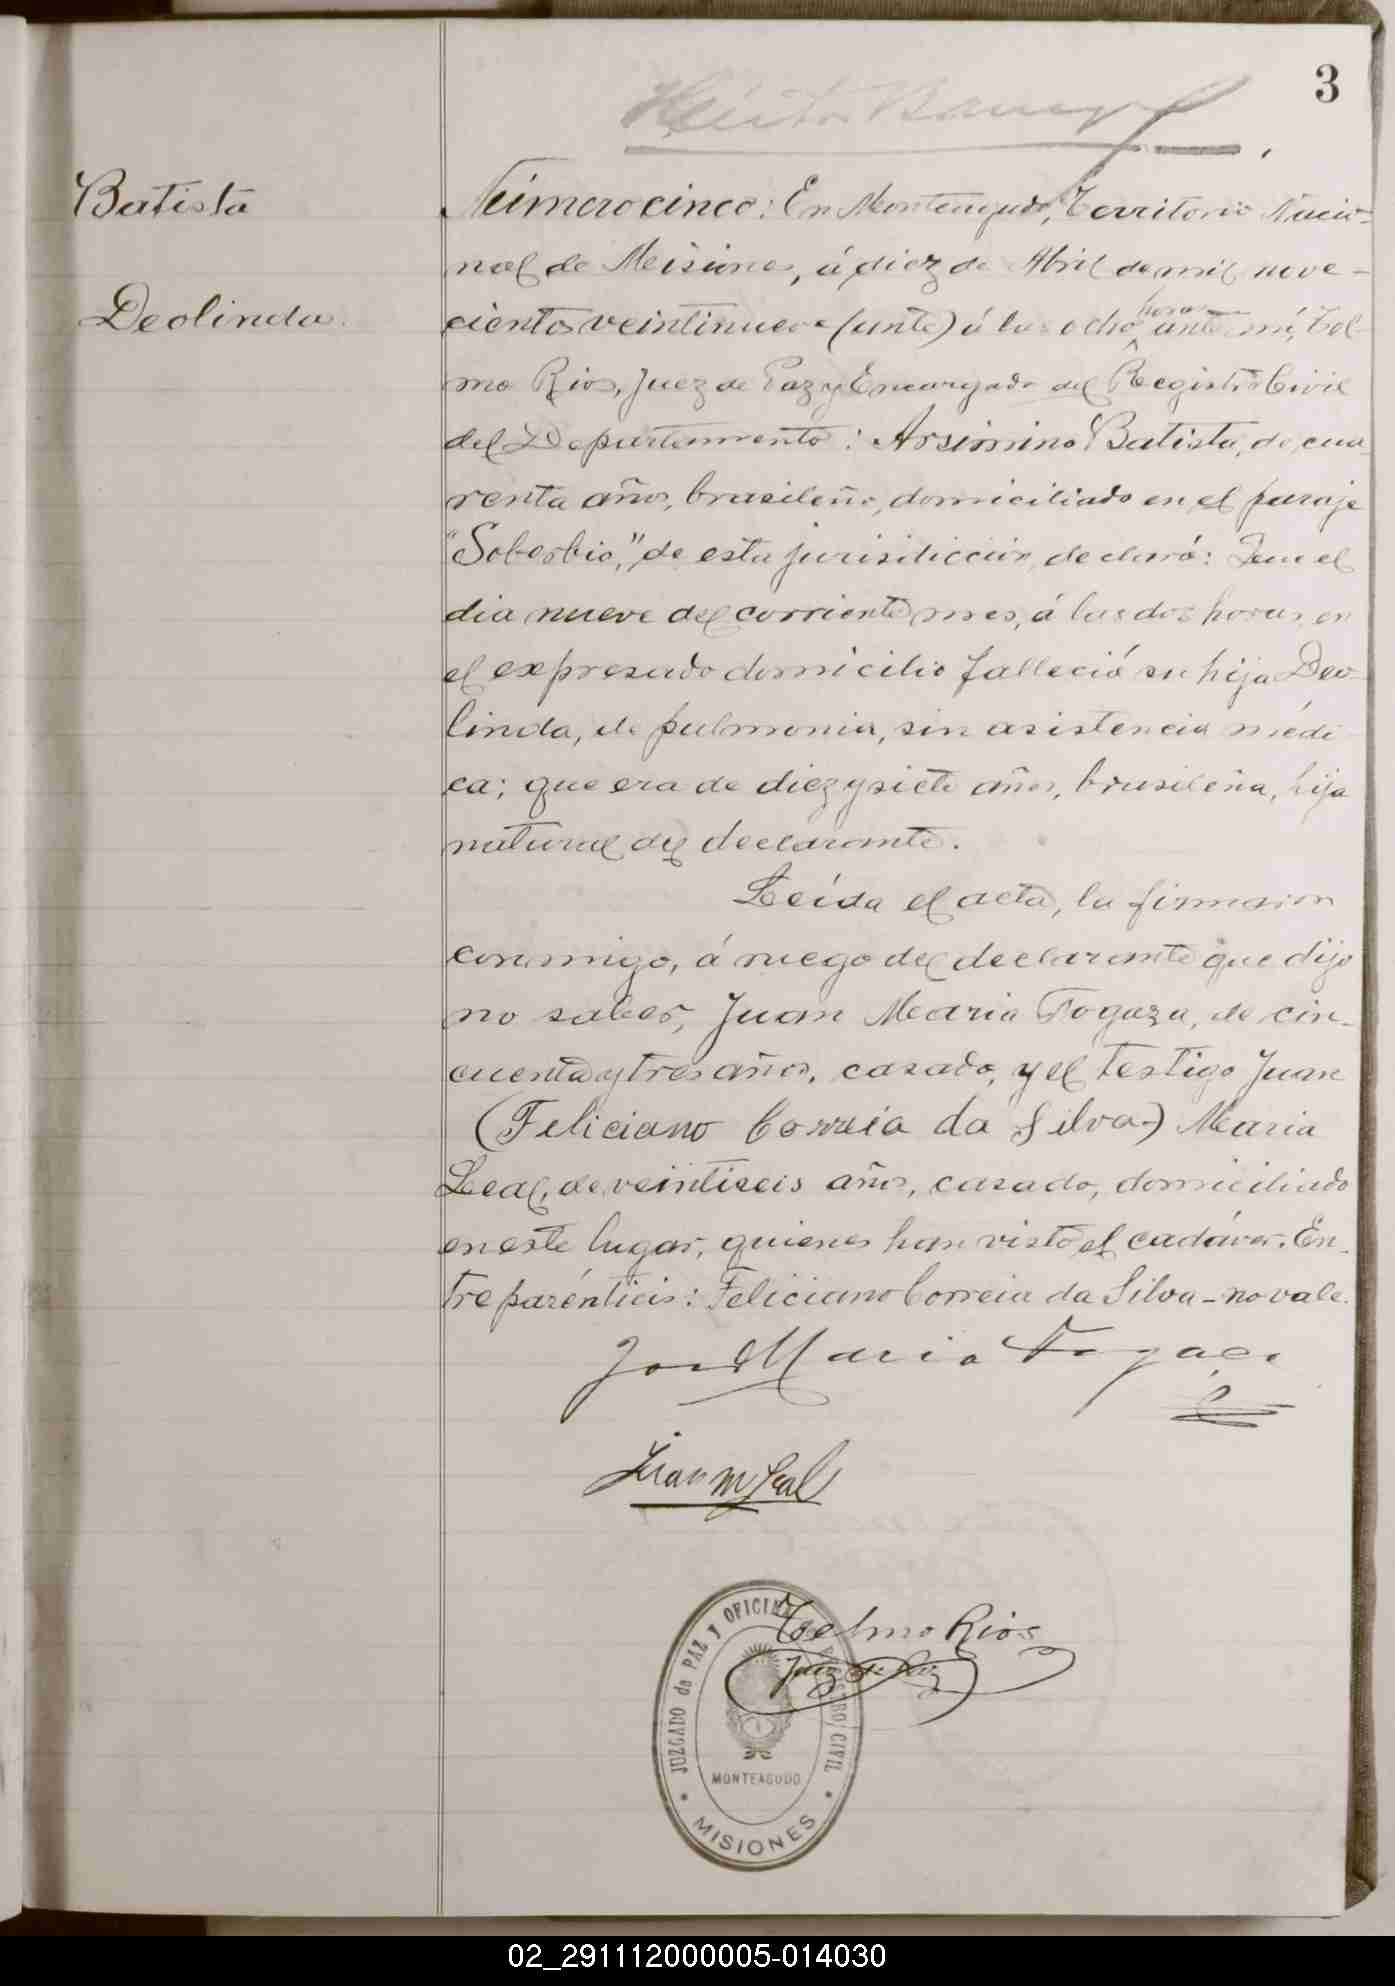 3
Héctor
Batista
Deolinda.
Número cinco: En Monteagudo, Territorio Nacio-
nal de Misiones, á diez de Abril de mil nove-
cientos veintinueve (ante) á las ocho horas ante mí, Tel-
mo Rios, Juez de Paz y Encargado del Registro Civil
del Departamento: Arsimino Batista, de cua-
renta años, brasileño, domiciliado en el paraje
"Soberbio," de esta jurisdicción, declaró: Que el
dia nueve del corriente mes, á las dos horas, en
el expresado domicilio falleció su hija Deo-
linda, de pulmonia, sin asistencia médi-
ca; que era de diez y siete años, brasileña, hija
natural del declarante.
Leída el acta, la firmaron
conmigo, á ruego del declarante que dijo
no saber, Juan Maria Fogaza, de cin-
cuenta y tres años, casado, y el testigo Juan
(Feliciano Correia da Silva-) Maria
Leal, de veintiseis años, casado, domiciliado
en este lugar, quienes han visto el cadáver. En-
tre paréntícis: Feliciano Correia da Silva - no vale.
Maria Fogaça
Juan M Leal
Telmo Rios
Juez de Paz
JUZGADO de PAZ y OFICINA del REGISTRO CIVIL
MONTEAGUDO
MISIONES
02_291112000005-014030